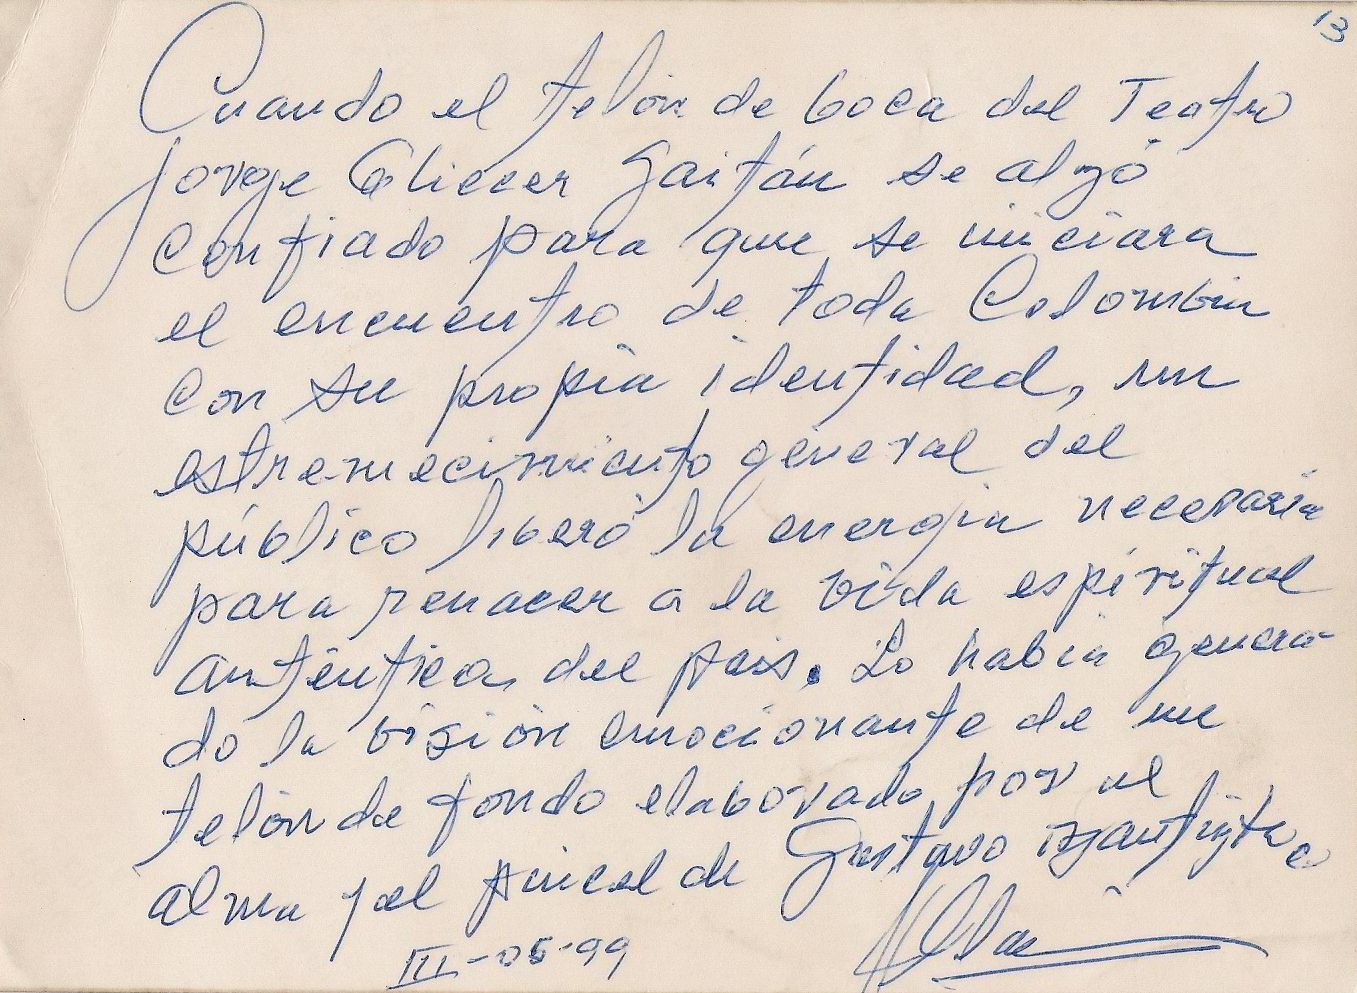 13
Cuando el telón de boca del Teatro
Jorge Eliecer Gaitán se alzó
confiado para que se iniciara
el encuentro de toda Colombia
con su propia identidad, un
estremecimiento general del
público liberó la energía necesaria
para renacer a la vida espiritual
auténtica del país. Lo había genera-
do la visión emocionante de un
telón de fondo elaborado por el
alma y el pincel de Gustavo
III-05-99